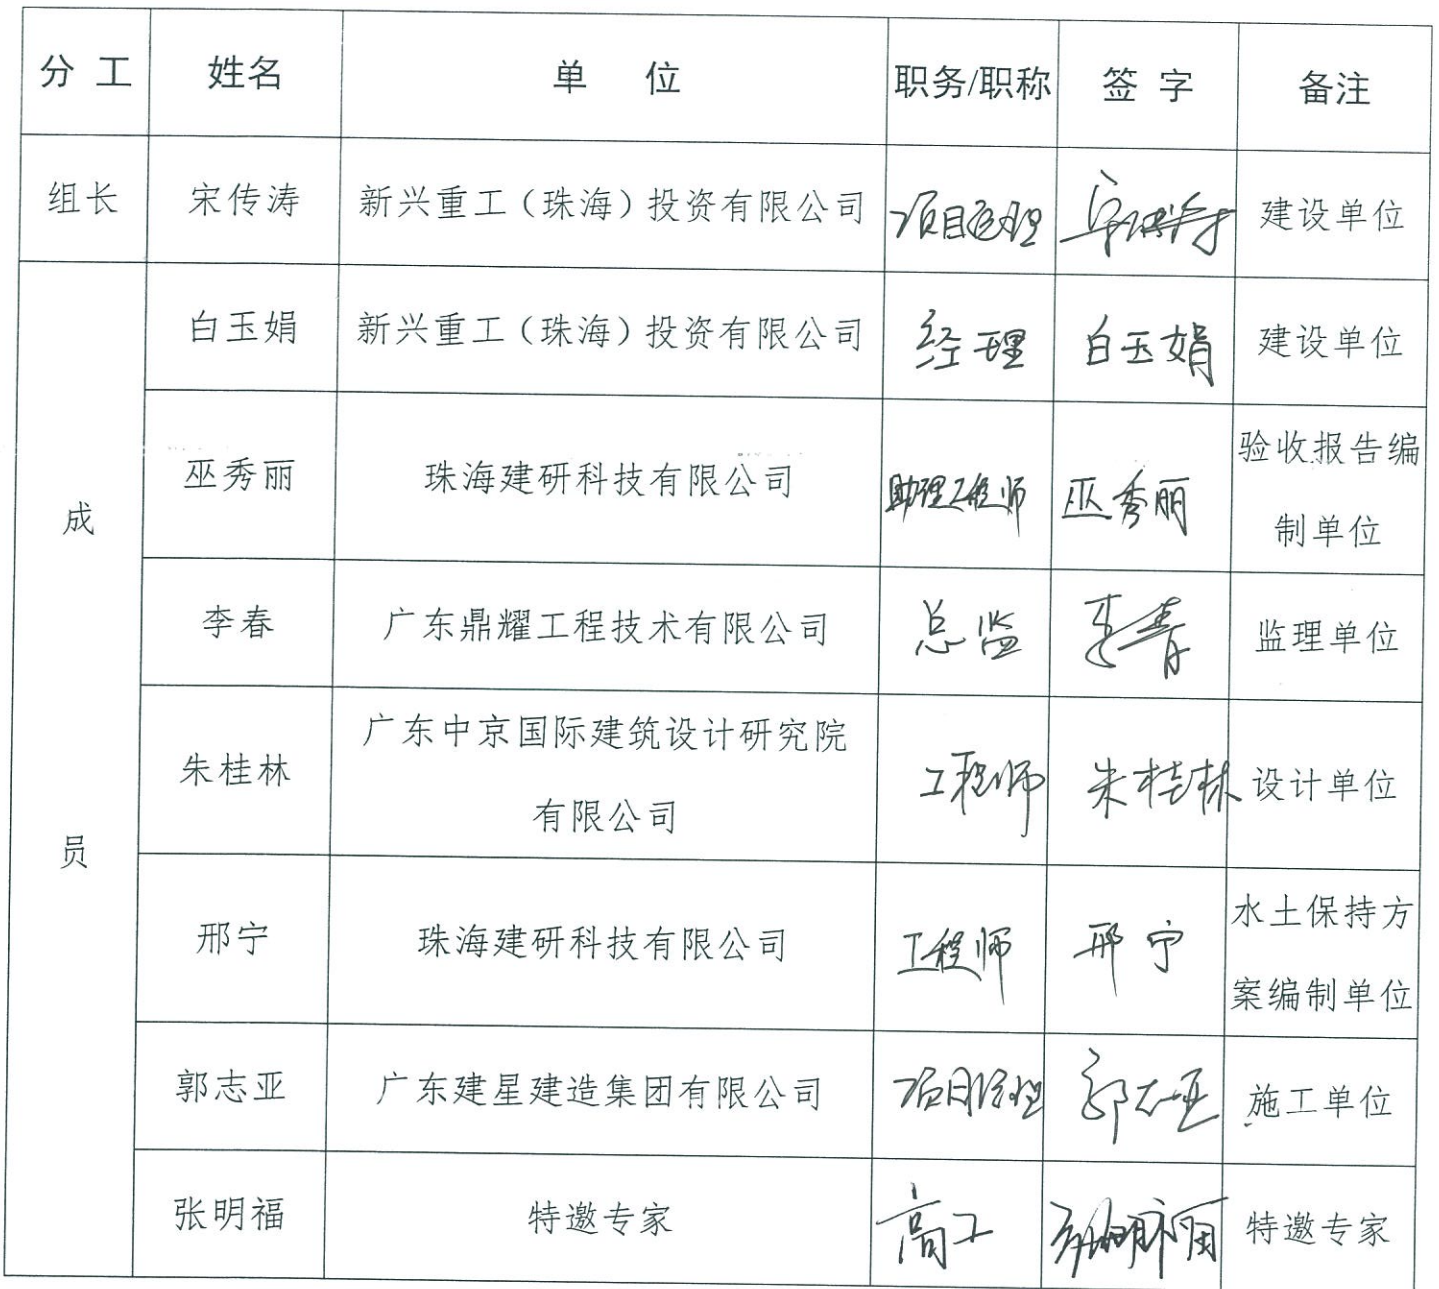 分 工 姓名 单 位 职务/职称 签 字 备注
组长 宋传涛 新兴重工（珠海）投资有限公司 项目经理 宋传涛 建设单位
白玉娟 新兴重工（珠海）投资有限公司 经理 白玉娟 建设单位
成
巫秀丽 珠海建研科技有限公司 助理工程师 巫秀丽 验收报告编
制单位
李春 广东鼎耀工程技术有限公司 总监 李春 监理单位
朱桂林 广东中京国际建筑设计研究院
有限公司 工程师 朱桂林 设计单位
员
邢宁 珠海建研科技有限公司 工程师 邢宁 水土保持方
案编制单位
郭志亚 广东建星建造集团有限公司 项目经理 郭志亚 施工单位
张明福 特邀专家 高工 张明福 特邀专家